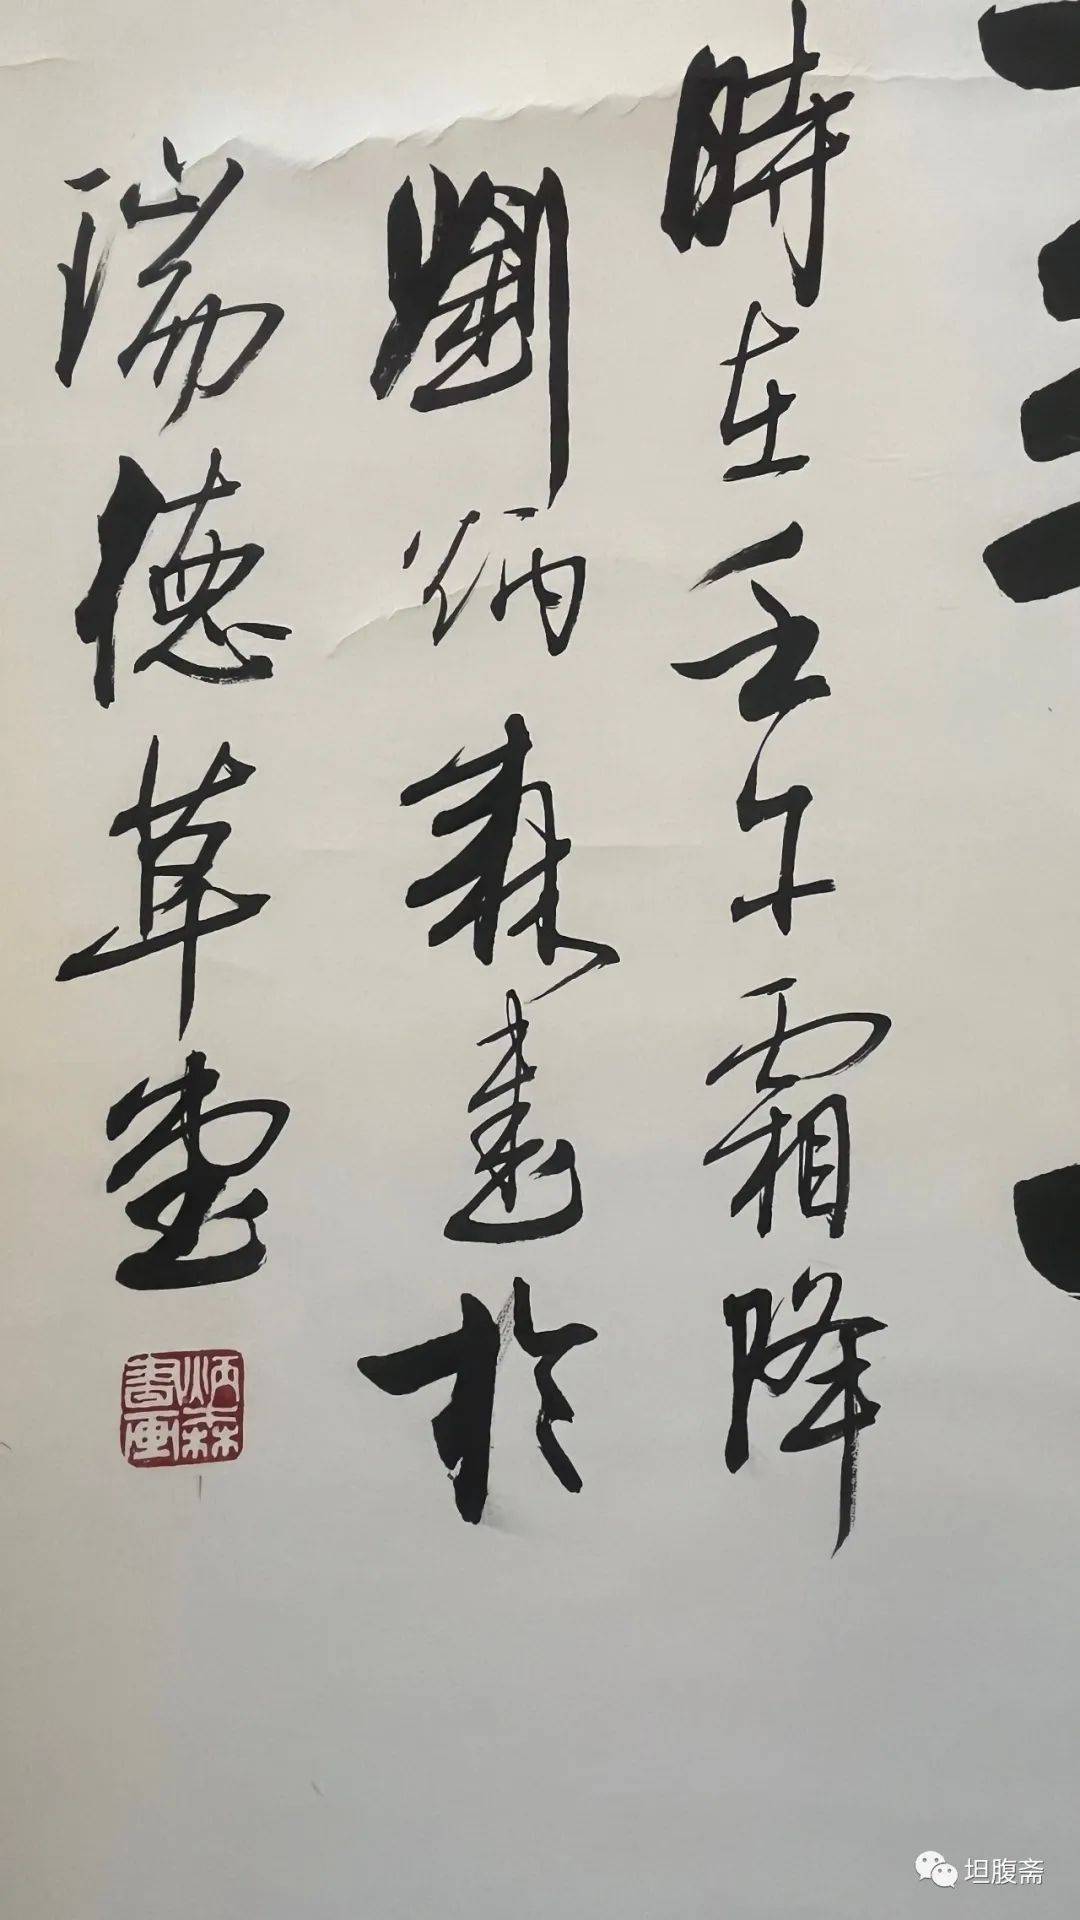 時在壬午霜降
劉炳森書於
瑞德草堂
炳森
書画
坦腹斋